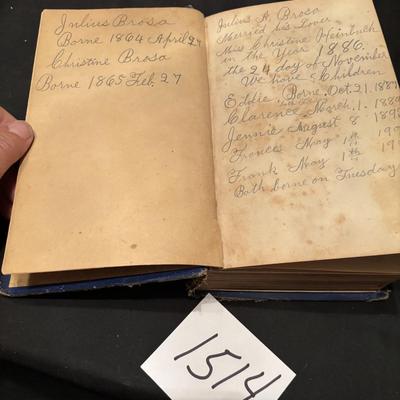 Julius Brosa
Borne 1864 April 24
Christine Brosa
Borne 1865 Feb. 27
Julius A. Brosa
Married his Lover
Miss Christine Heinbuch
in the Year 1886.
the 24 day of November
We have 5 Children
Eddie, Borne, Oct. 21, 188
Clarence, March, 1. 188
Jennie August 8. 189
Frances May 1th 19
Frank May 1th 19
Both borne on Tuesday
1514